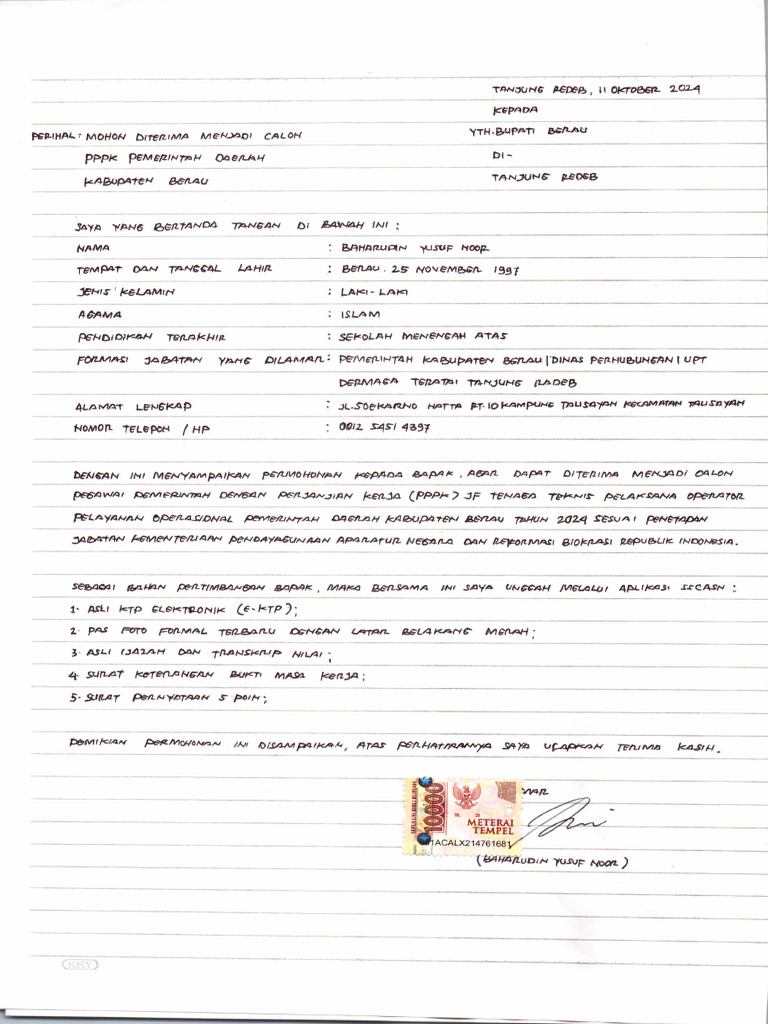 TANJUNG REDEB, 11 OKTOBER 2024
KEPADA
PERIHAL : MOHON DITERIMA MENJADI CALON
YTH. BUPATI BERAU
PPPK PEMERINTAH DAERAH
DI-
KABUPATEN BERAU
TANJUNG REDEB
SAYA YANG BERTANDA TANGAN DI BAWAH INI :
NAMA : BAHARUDIN YUSUF NOOR
TEMPAT DAN TANGGAL LAHIR : BERAU. 25 NOVEMBER 1997
JENIS KELAMIN : LAKI-LAKI
AGAMA : ISLAM
PENDIDIKAN TERAKHIR : SEKOLAH MENENGAH ATAS
FORMASI JABATAN YANG DILAMAR : PEMERINTAH KABUPATEN BERAU | DINAS PERHUBUNGAN | UPT
DERMAGA TERATAI TANJUNG RADEB
ALAMAT LENGKAP : JL. SOEKARNO HATTA RT. 10 KAMPUNG TALISAYAN KECAMATAN TALISAYAN
NOMOR TELEPON / HP : 0812 5451 4397
DENGAN INI MENYAMPAIKAN PERMOHONAN KEPADA BAPAK, AGAR DAPAT DITERIMA MENJADI CALON
PEGAWAI PEMERINTAH DENGAN PERJANJIAN KERJA (PPPK) JF TENAGA TEKNIS PELAKSANA OPERATOR
PELAYANAN OPERASIONAL PEMERINTAH DAERAH KABUPATEN BERAU TAHUN 2024 SESUAI PENETAPAN
JABATAN KEMENTERIAAN PENDAYAGUNAAN APARATUR NEGARA DAN REFORMASI BIOKRASI REPUBLIK INDONESIA.
SEBAGAI BAHAN PERTIMBANGAN BAPAK, MAKA BERSAMA INI SAYA UNGGAH MELALUI APLIKASI SSCASN :
1. ASLI KTP ELEKTRONIK (E-KTP);
2. PAS FOTO FORMAL TERBARU DENGAN LATAR BELAKANG MERAH;
3. ASLI IJAZAH DAN TRANSKRIP NILAI;
4. SURAT KETERANGAN BUKTI MASA KERJA;
5. SURAT PERNYATAAN 5 POIN;
DEMIKIAN PERMOHONAN INI DISAMPAIKAN, ATAS PERHATIANNYA SAYA UCAPKAN TERIMA KASIH.
10000
METERAI
TEMPEL
1ACALX214761681
(BAHARUDIN YUSUF NOOR)